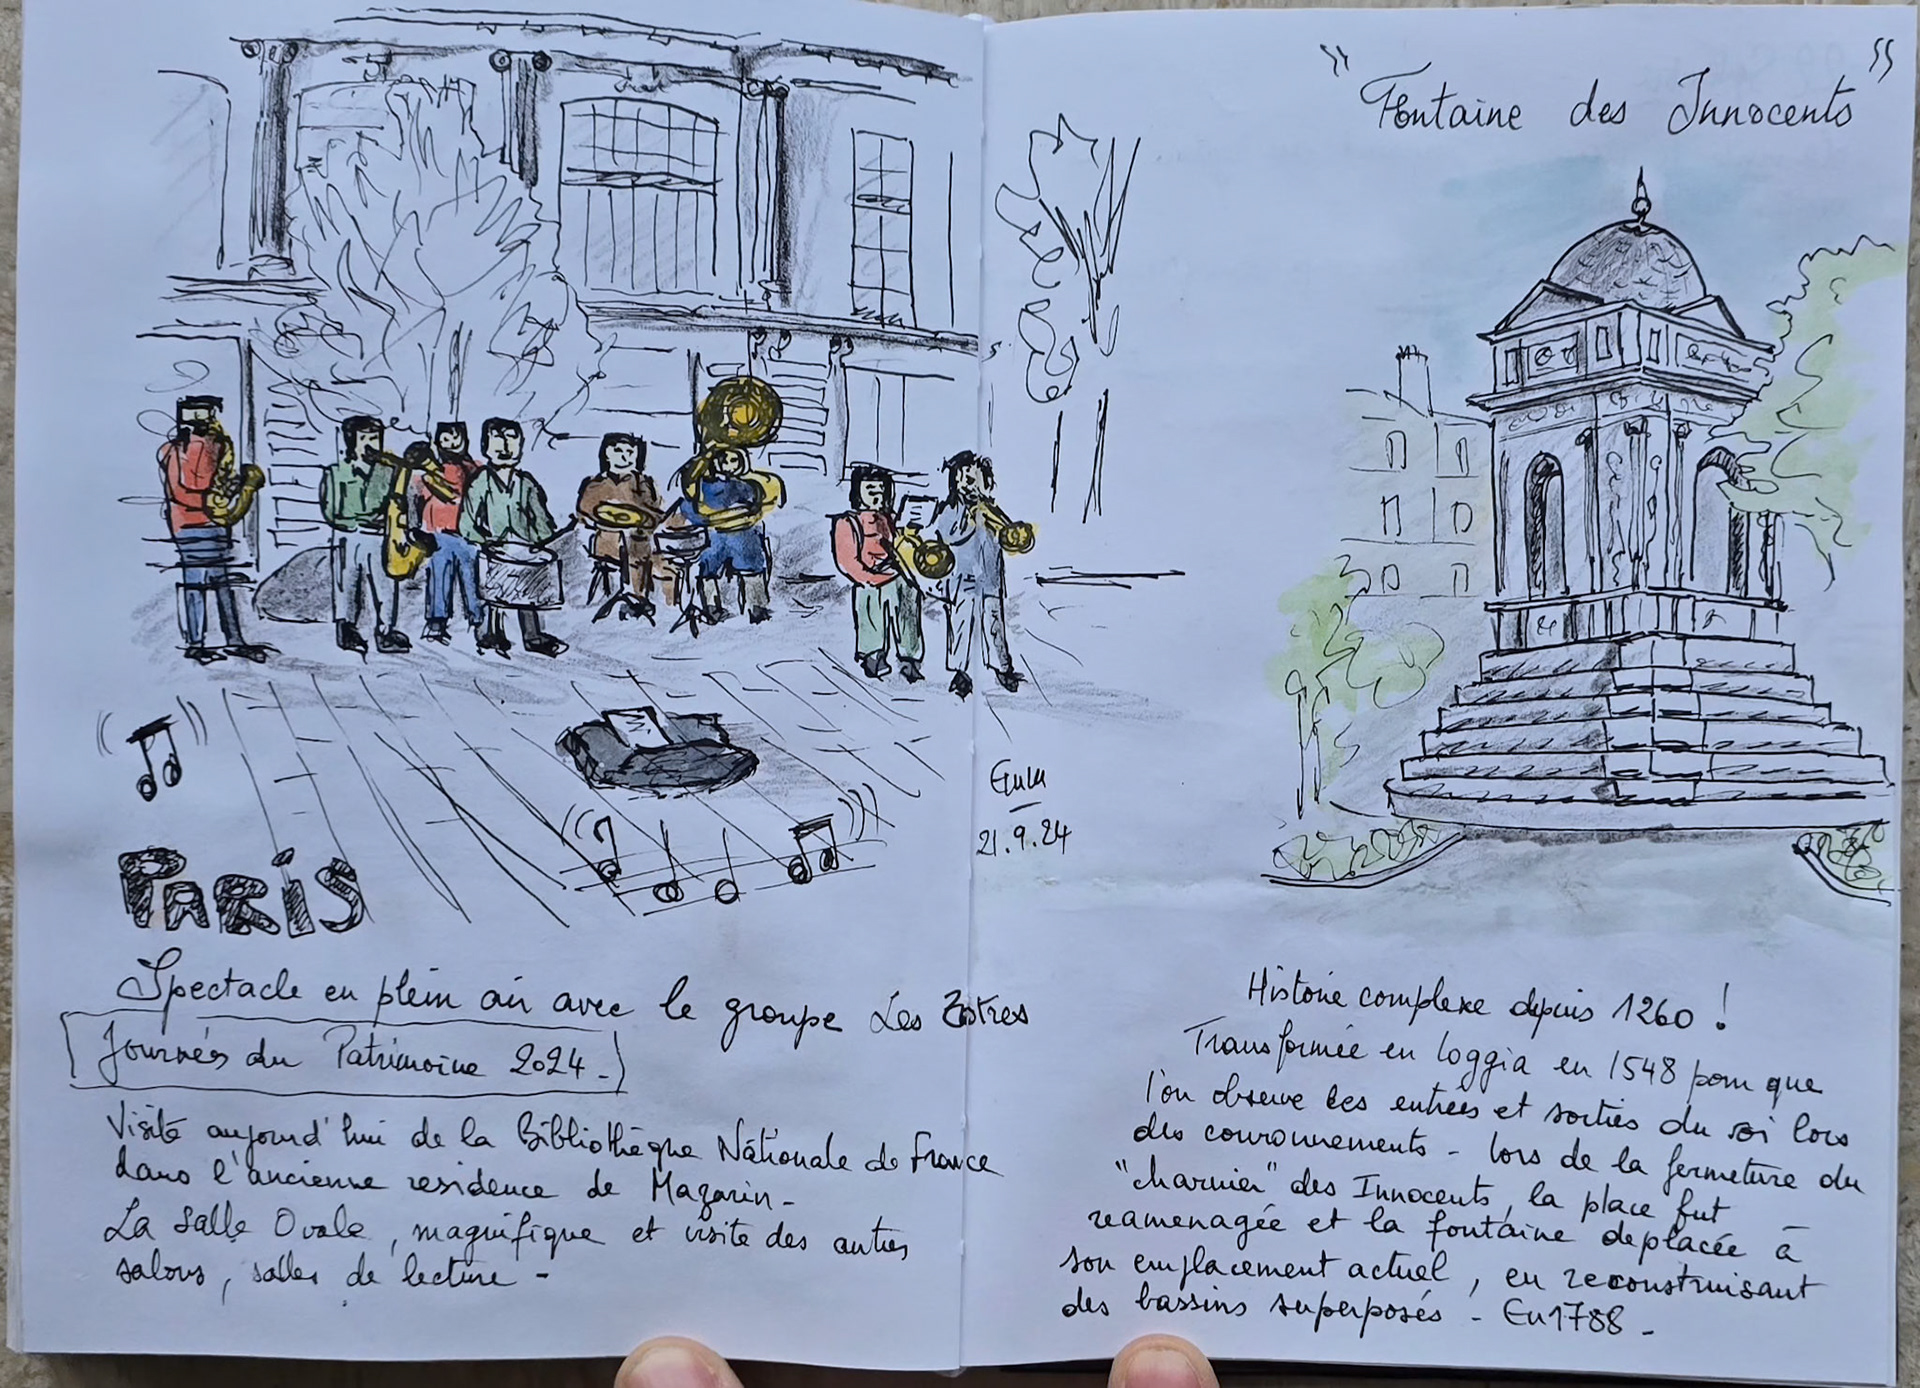 PARIS
Spectacle en plein air avec le groupe Les Zotres
Journées du Patrimoine 2024 -
Visite aujourd'hui de la Bibliothèque Nationale de France
dans l'ancienne residence de Mazarin -
La Salle Ovale, magnifique et visite des autres
salons, salles de lecture -
21.9.24
"Fontaine des Innocents"
Histoire complexe depuis 1260 !
Transformée en loggia en 1548 pour que
l'on observe les entrées et sorties du roi lors
des couronnements - lors de la fermeture du
"charnier" des Innocents, la place fut
reamenagée et la fontaine deplacée à
son emplacement actuel, en reconstruisant
des bassins superposés - En 1788 -